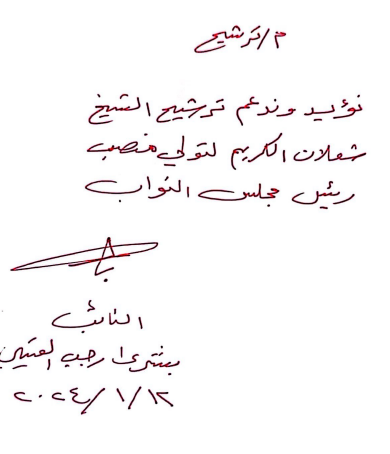 م/ترشيح
نؤيد وندعم ترشيح الشيخ
شعلان الكريم لتولي منصب
رئيس مجلس النواب
النائب
رجب
٢٠٢٤/١/١٢